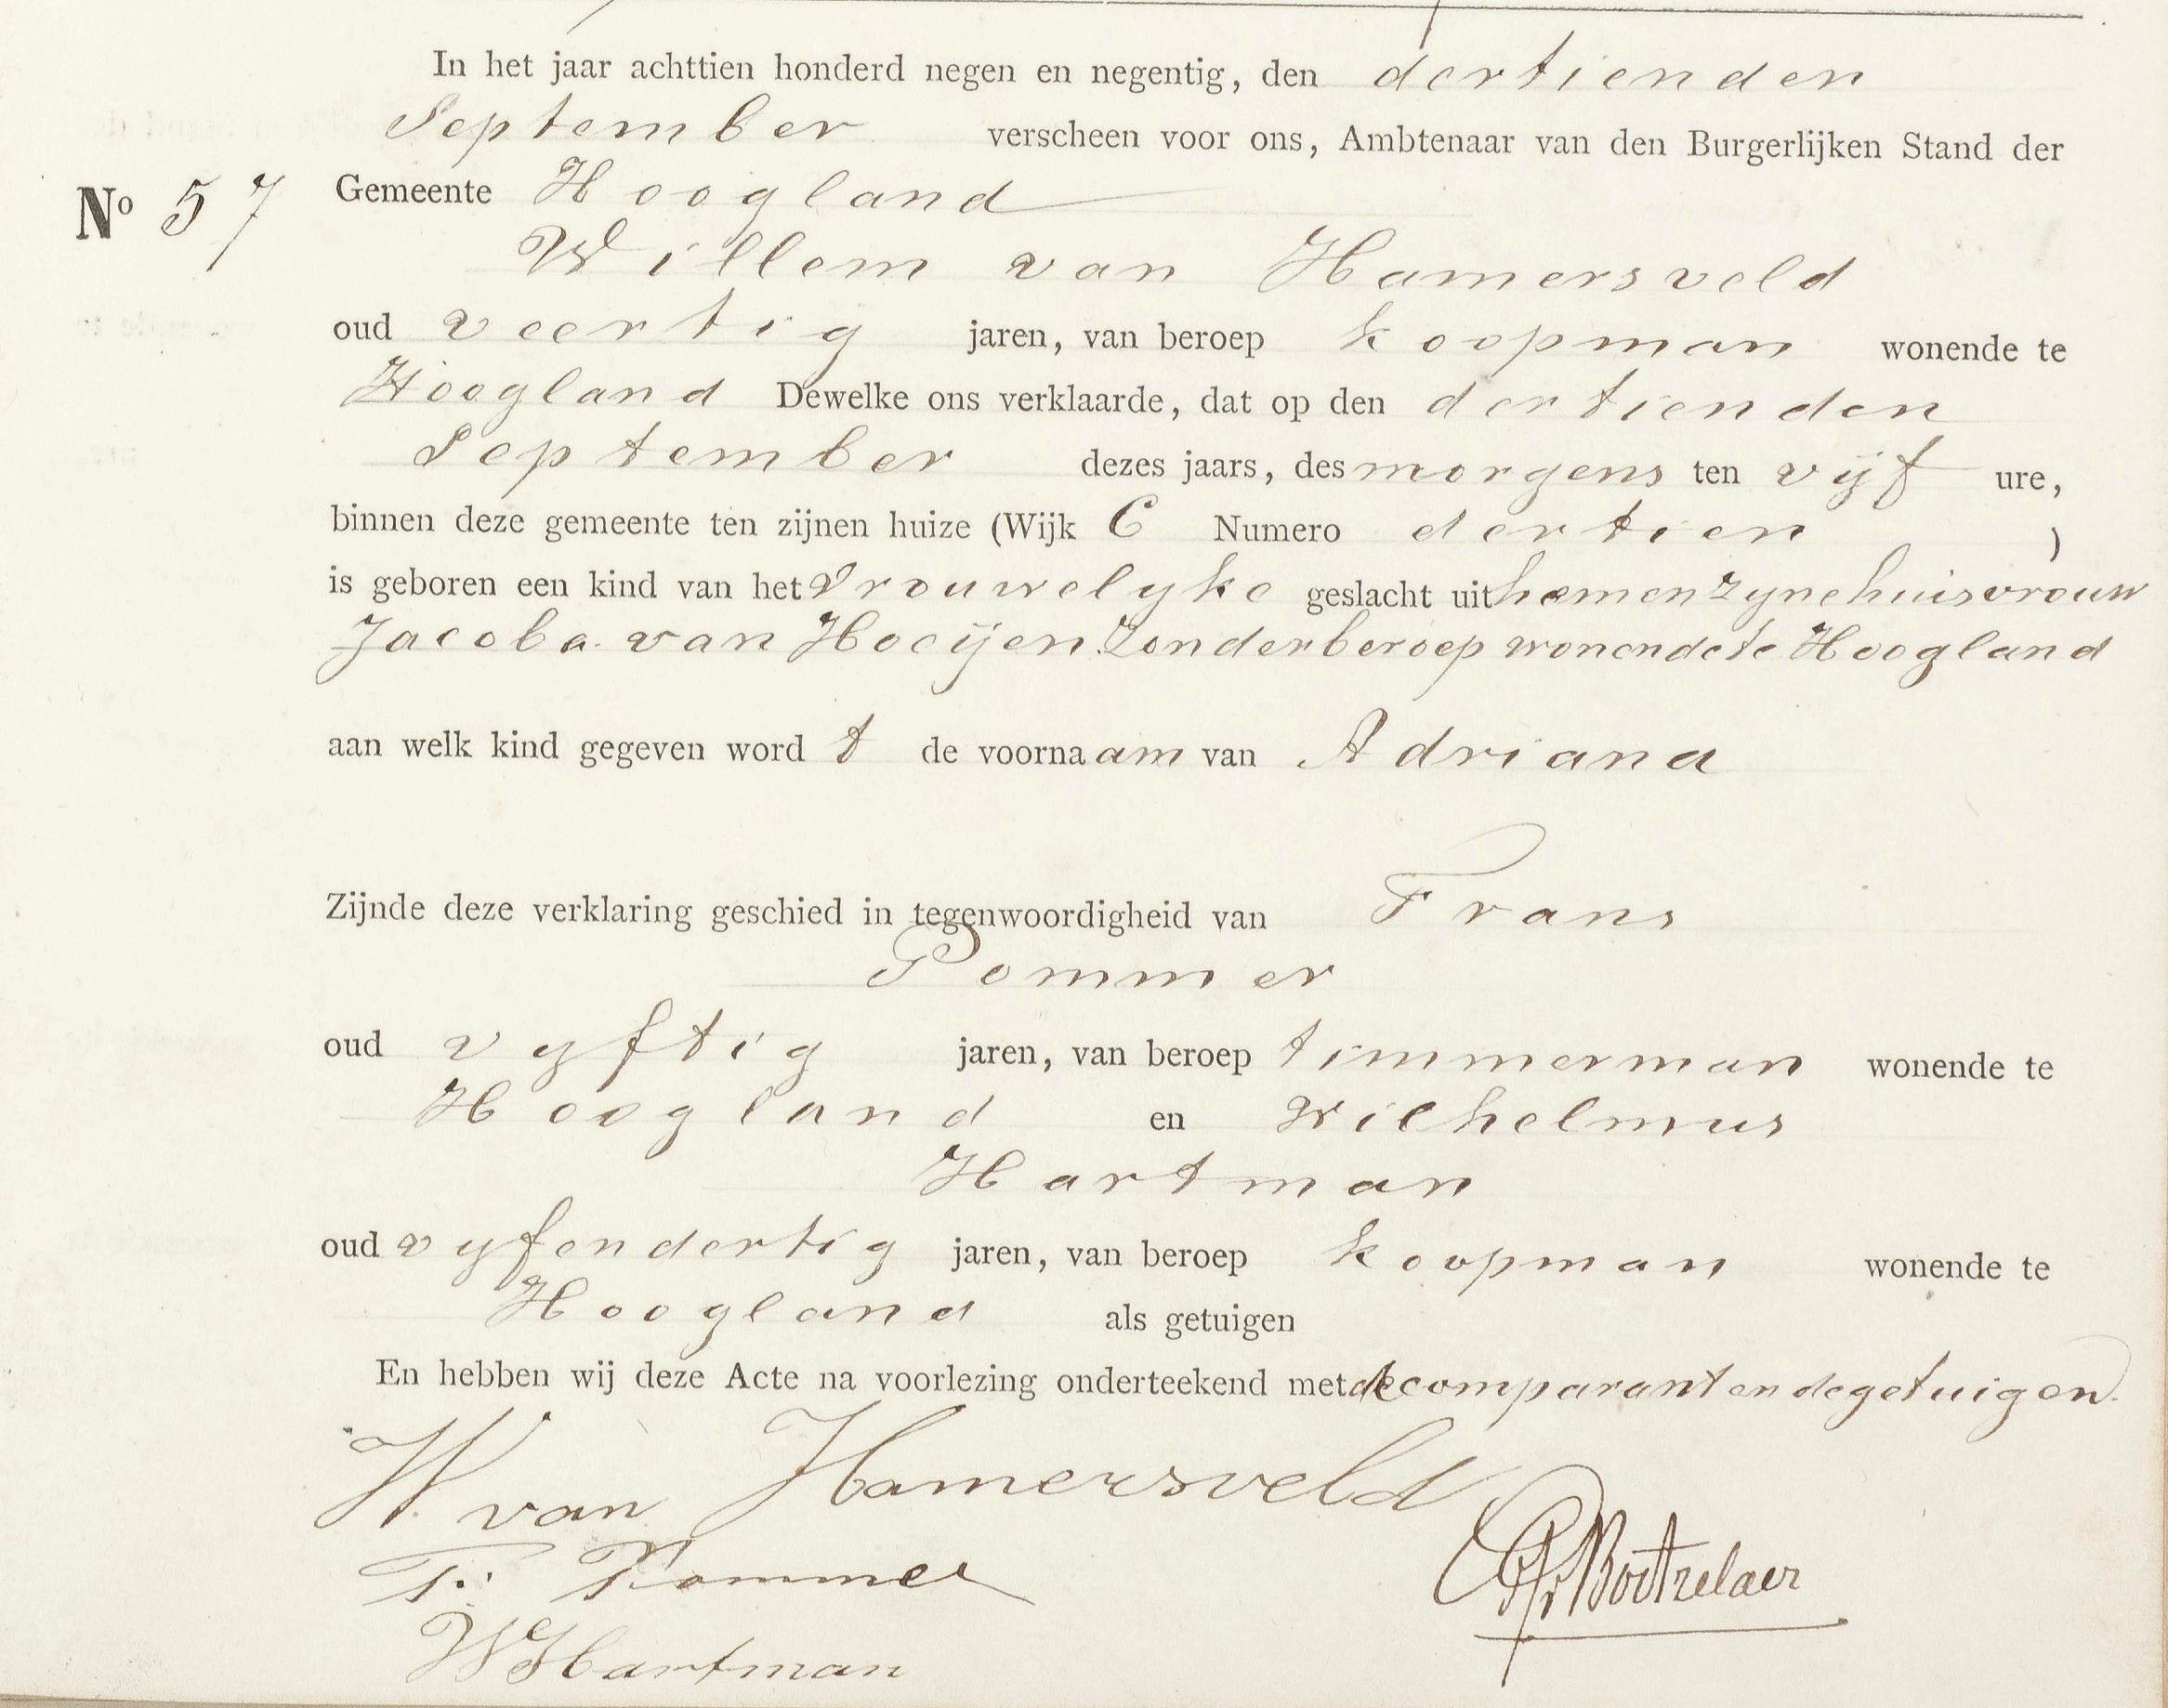 In het jaar achttien honderd negen en negentig, den dertienden
September verscheen voor ons, Ambtenaar van den Burgerlijken Stand der
No 57 Gemeente Hoogland
Willem van Hamersveld
oud veertig jaren, van beroep koopman wonende te
Hoogland Dewelke ons verklaarde, dat op den dertienden
September dezes jaars, des morgens ten vijf ure,
binnen deze gemeente ten zijnen huize (Wijk C Numero dertien )
is geboren een kind van het Vrouwelyke geslacht uit hem en zyne huisvrouw
Jacoba van Hoeijen. Zonder beroep wonende te Hoogland
aan welk kind gegeven word t de voorna am van Adriana
Zijnde deze verklaring geschied in tegenwoordigheid van Frans
Pommer
oud vyftig jaren, van beroep timmerman wonende te
Hoogland en Wilhelmus
Hartman
oud vyfendertig jaren, van beroep koopman wonende te
Hoogland als getuigen
En hebben wij deze Acte na voorlezing onderteekend met de comparant en de getuigen.
W. van Hamersveld
F. Pommer
Boetzelaer
W Hartman